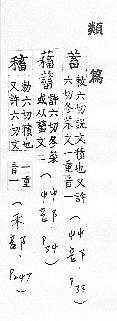 類篇
蓄 敕六切說文積也又許
六切冬菜文一重音一 (艸部下, P.33)
許六切冬菜
或从蓄文二 (艸部下, P34)
稸 勑六切積也
又許六切文一重音一 (禾部下, P.247)